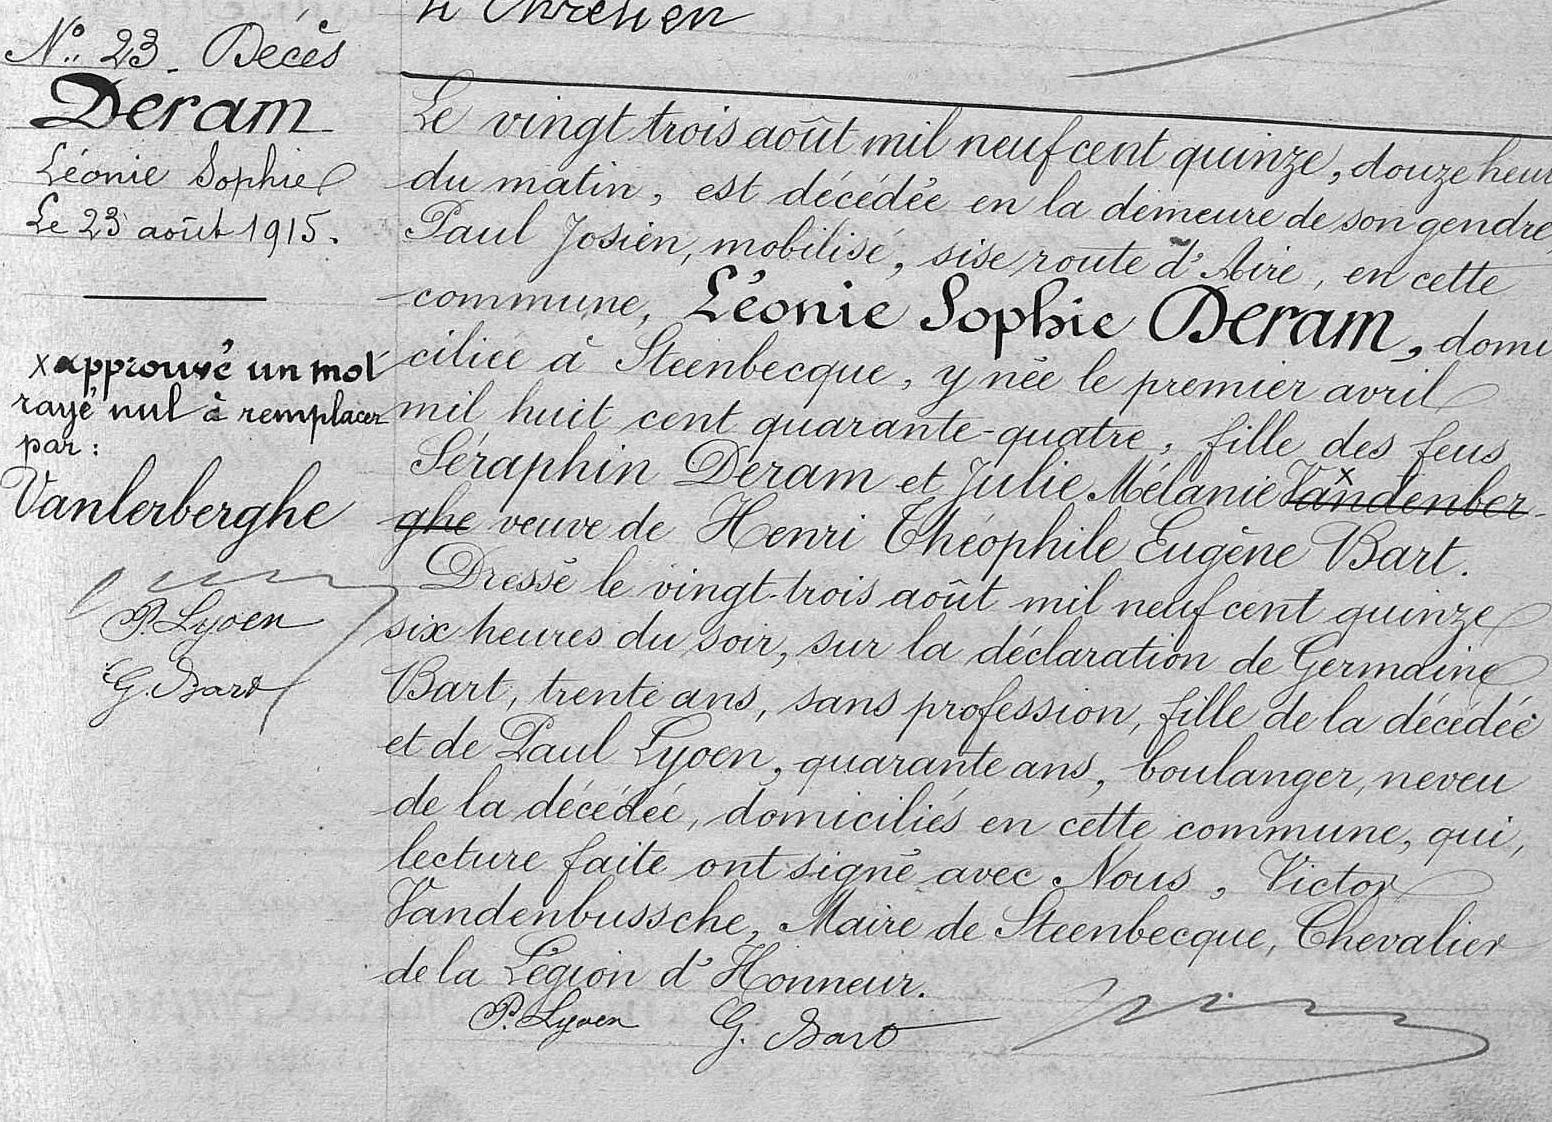 h Chrétien
N°: 23. Décès
Deram
Léonie Sophie
Le 23 août 1915.
x approuvé un mot
rayé nul à remplacer
par :
Vanlerberghe
P. Lyoen
G. Bart
Le vingt trois août mil neuf cent quinze, douze heur
du matin, est décédée en la demeure de son gendre,
Paul Josien, mobilisé, sise route d'Aire, en cette
commune, Léonie Sophie Deram, domi
ciliée à Steenbecque, y née le premier avril
mil huit cent quarante-quatre, fille des feus
Séraphin Deram et Julie Mélanie x Vandenber-
ghe veuve de Henri Théophile Eugène Bart.
Dressé le vingt-trois août mil neuf cent quinze
six heures du soir, sur la déclaration de Germaine
Bart, trente ans, sans profession, fille de la décédée
et de Paul Lyoen, quarante ans, boulanger, neveu
de la décédée, domiciliés en cette commune, qui,
lecture faite ont signé avec Nous, Victor
Vandenbussche, Maire de Steenbecque, Chevalier
de la Légion d'Honneur.
P. Lyoen G. Bart